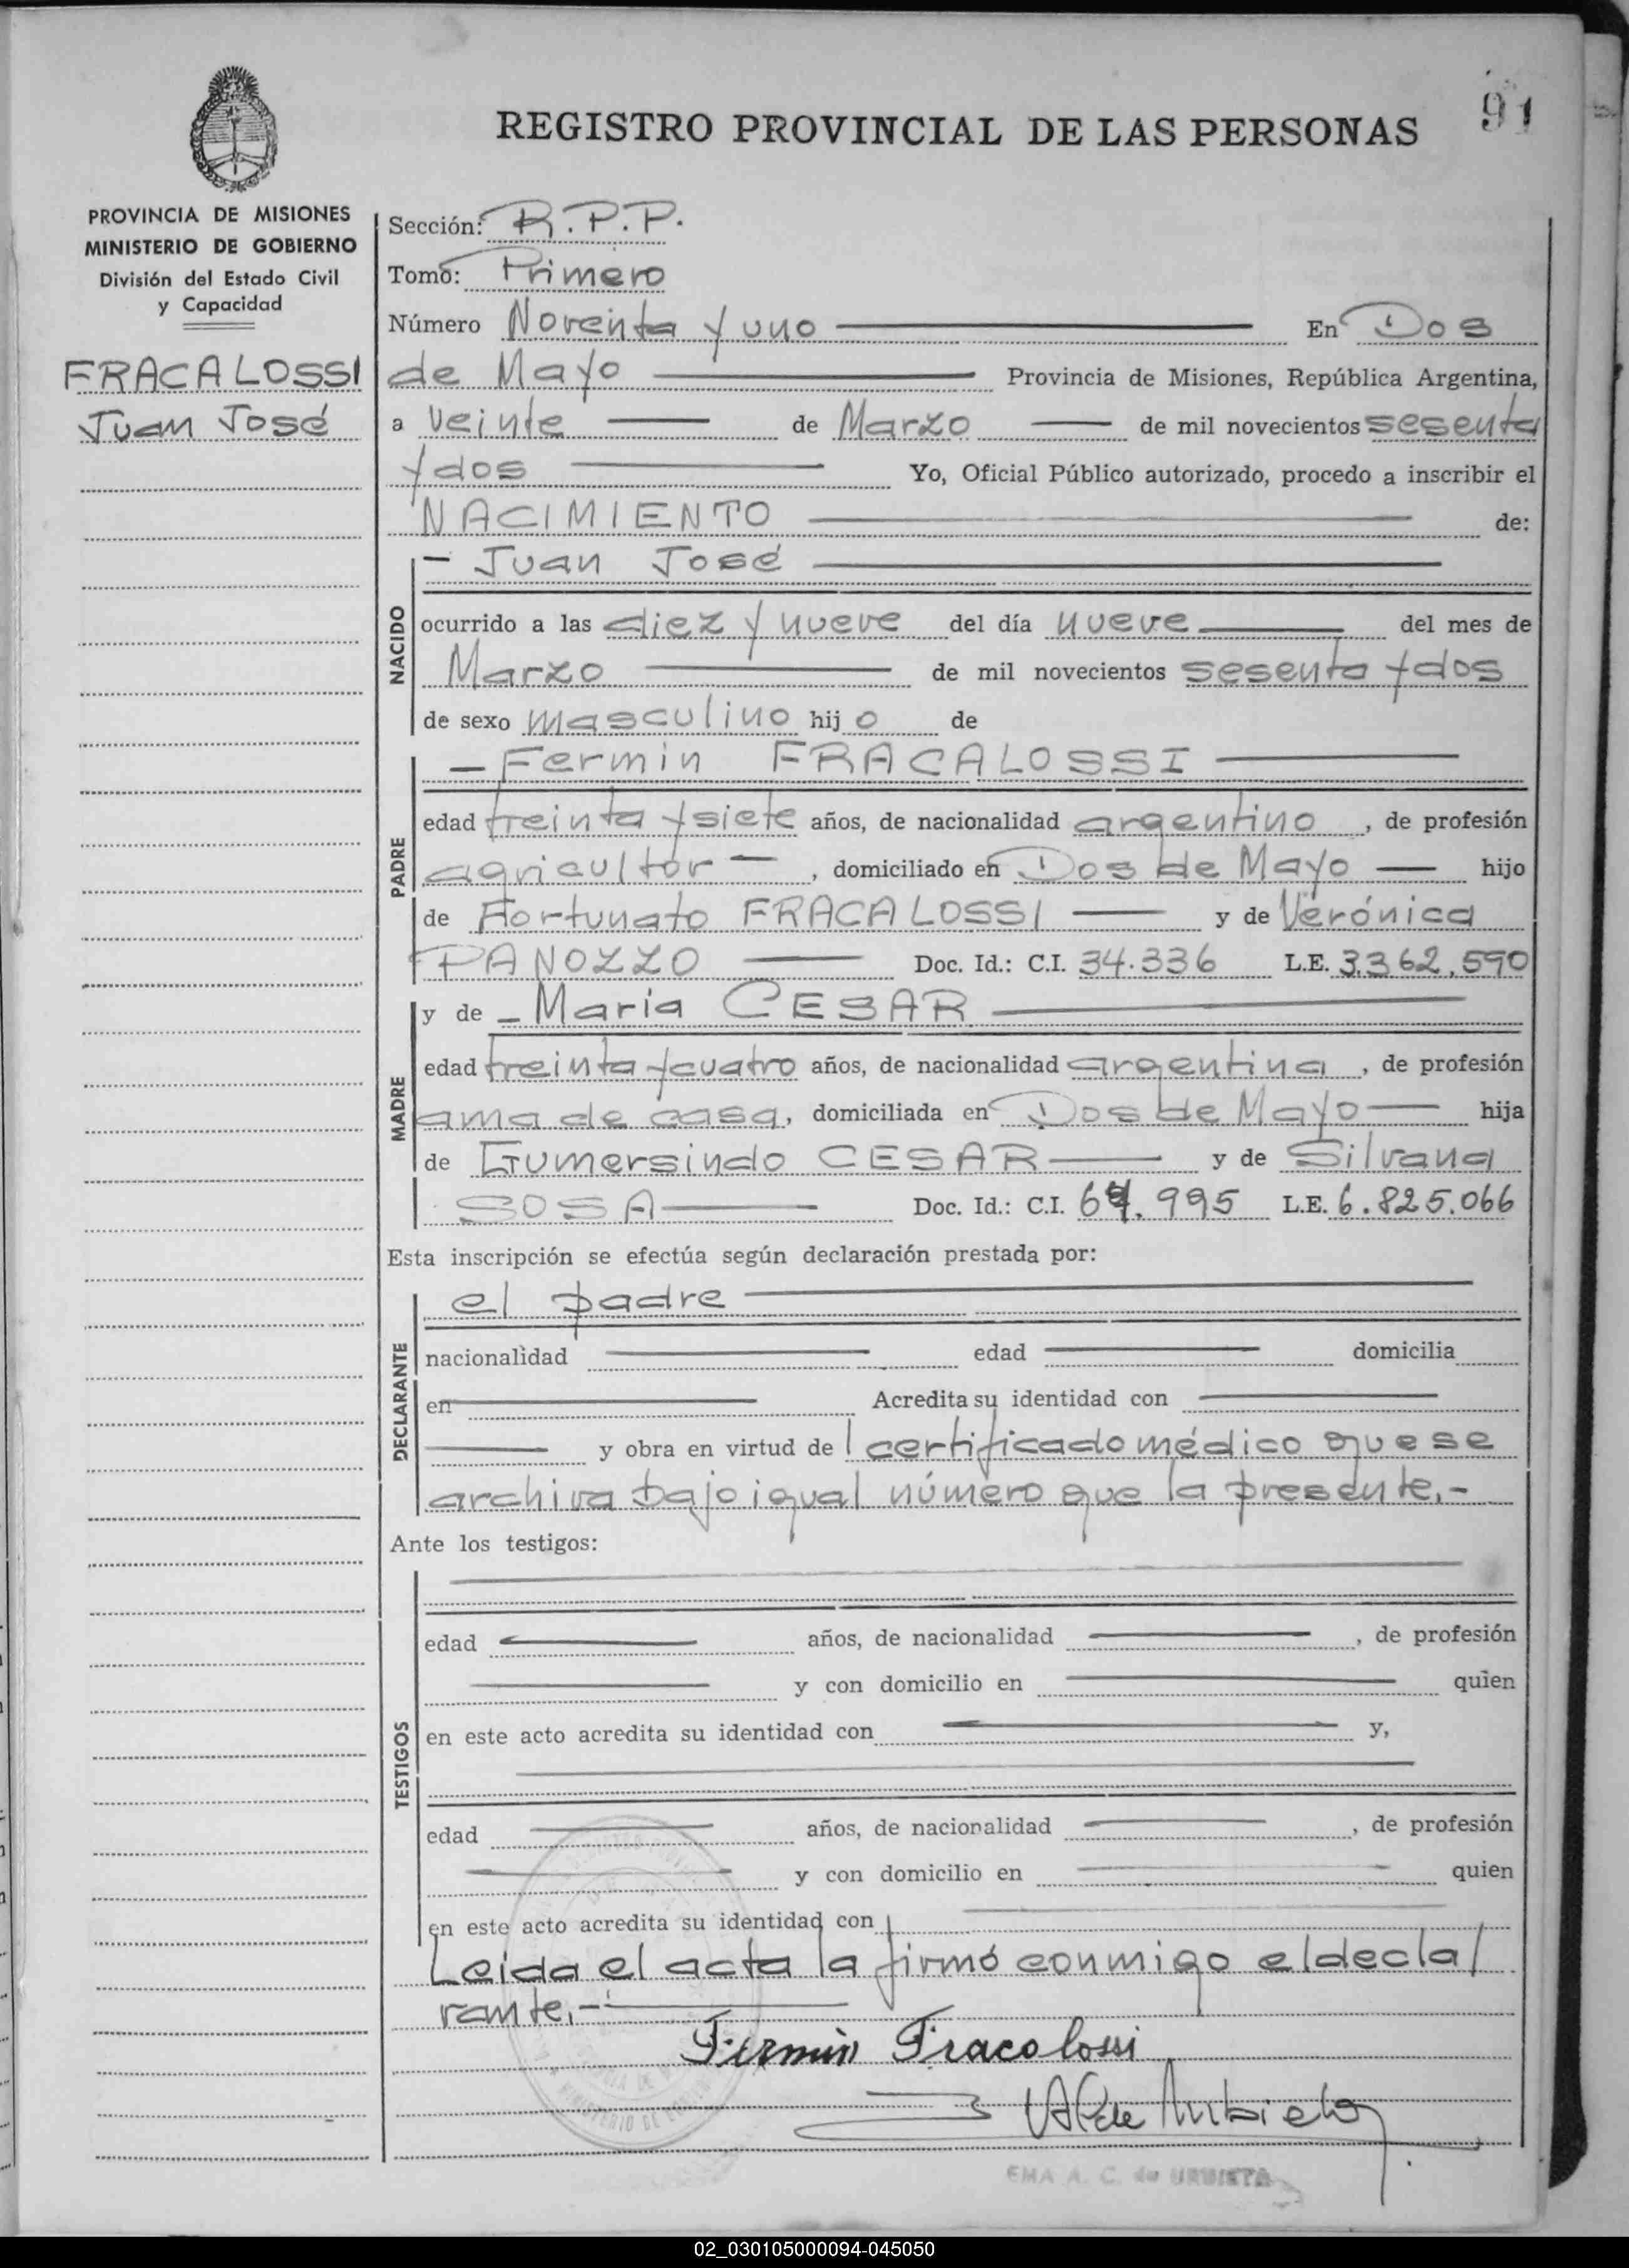 91
REGISTRO PROVINCIAL DE LAS PERSONAS
PROVINCIA DE MISIONES
MINISTERIO DE GOBIERNO
División del Estado Civil
y Capacidad
FRACALOSSI
Juan José
Sección: R.P.P.
Tomo: Primero
Número Noventa y uno En Dos
de Mayo Provincia de Misiones, República Argentina,
a veinte de Marzo de mil novecientos sesenta
y dos Yo, Oficial Público autorizado, procedo a inscribir el
NACIMIENTO de:
NACIDO
- Juan José
ocurrido a las diez y nueve del día nueve del mes de
Marzo de mil novecientos sesenta y dos
de sexo masculino hijo de
PADRE
- Fermin FRACALOSSI
edad treinta y siete años, de nacionalidad argentino, de profesión
agricultor -, domiciliado en Dos de Mayo - hijo
de Fortunato FRACALOSSI y de Verónica
PANOZZO Doc. Id.: C.I. 34.336 L.E. 3.362.590
MADRE
y de - Maria CESAR
edad treinta y cuatro años, de nacionalidad argentina, de profesión
ama de casa, domiciliada en Dos de Mayo - hija
de Gumersindo CESAR y de Silvana
SOSA Doc. Id.: C.I. .995 L.E. 6.825.066
Esta inscripción se efectúa según declaración prestada por:
DECLARANTE
el padre
nacionalidad edad domicilia
en Acredita su identidad con
y obra en virtud del certificado médico que se
archiva bajo igual número que la presente.-
Ante los testigos:
TESTIGOS
edad años, de nacionalidad , de profesión
y con domicilio en quien
en este acto acredita su identidad con y,
edad años, de nacionalidad , de profesión
y con domicilio en quien
en este acto acredita su identidad con
Leida el acta la firmó conmigo el decla/
rante.-
Fermin Fracalossi
EMA A. C. de URBIETA
02_030105000094-045050